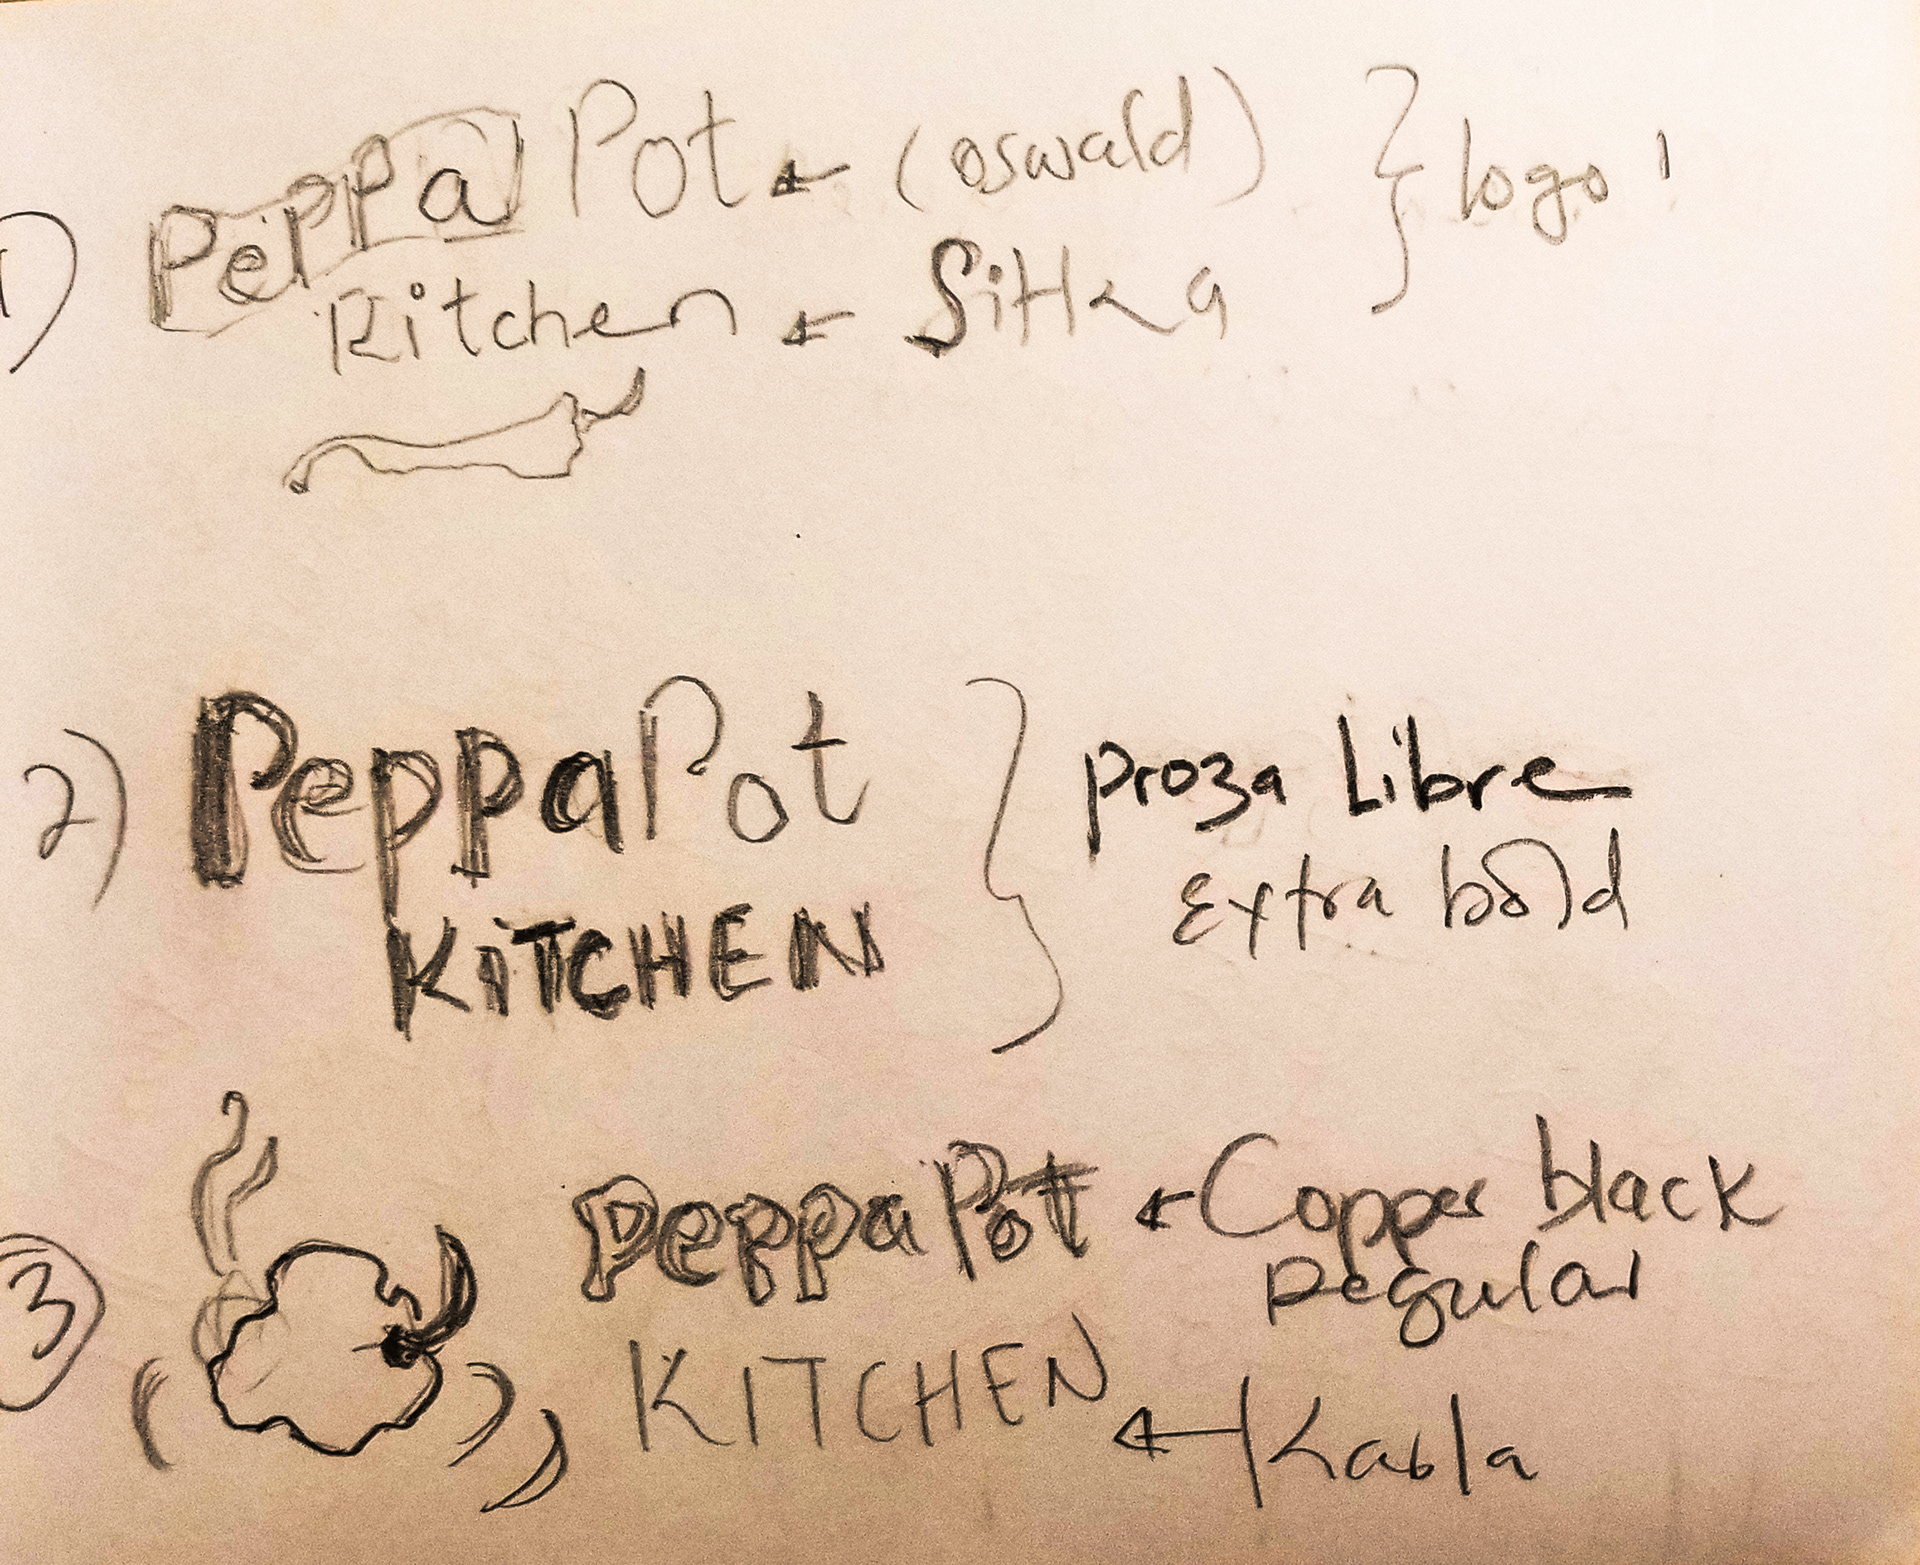 1) Peppa Pot ← (oswald) } logo 1
Kitchen ← Sitka
2) PeppaPot } Proza Libre
Extra bold
KiTCHEN
3 Peppa Pot ← Copper black
Regular
KITCHEN ← Karla